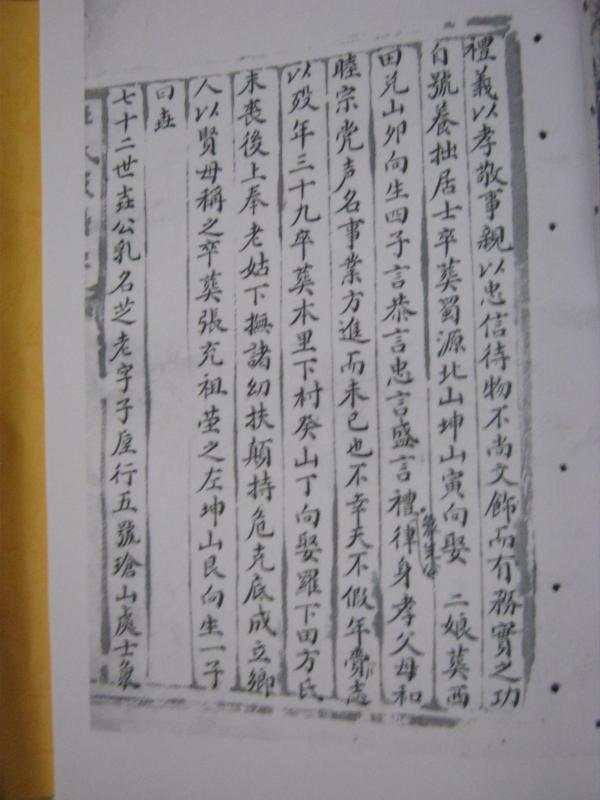 禮義以孝敬事親以忠信待物不尚文飾而有務實之功
自號養拙居士卒葬蜀源北山坤山寅向娶 二娘葬西
田兄山卯向生四子言恭言忠言盛言禮律身孝父母和
睦宗党声名事業方進而未已也不幸天不假年賫志
以殁年三十九卒葬本里下村癸山丁向娶羅下田方氏
末喪後上奉老姑下撫諸幼扶顛持危克底成立鄉
人以賢母稱之卒葬張充祖茔之左坤山艮向生一子
曰垚
七十二世垚公乳名芝老字子厓行五號瑲山處士氣